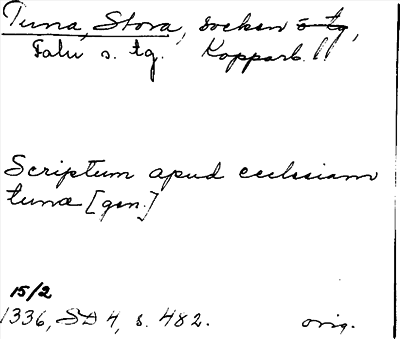 Tuna, Stora, socken o tg,
Falu s. tg. Kopparb. ll
Scriptum apud ecclesiam
tuna [gen.]
15/2
1336, SD 4, s. 482. orig.